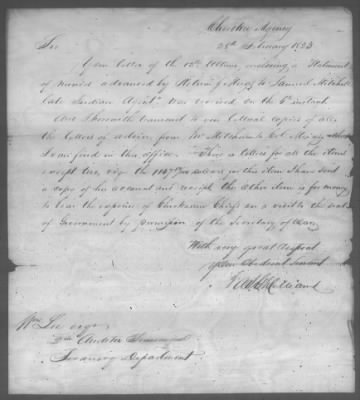 Cherokee Agency
28th February 1823
Sir
Your letter of the 13th Ultimo, enclosing a Statement
of monies advanced by Return J. Meigs to Samuel Mitchell
late Indian Agent was received on the 6th instant
And I herewith transmit to you literal copies of all
the letters of advice from Mr Mitchell to Col. Meigs which
I can find in this office. There is letters for all the items
except two, viz the on this item I have sent
a copy of his account and receipt the other item is for money
to bear the expenses of Chickasaw Chiefs on a visit to the seat
of Government by permission of the Secretary of War
With very great respect
Your Obedient Servant
Wm Lee esqr
2nd Auditor
Treasury Department